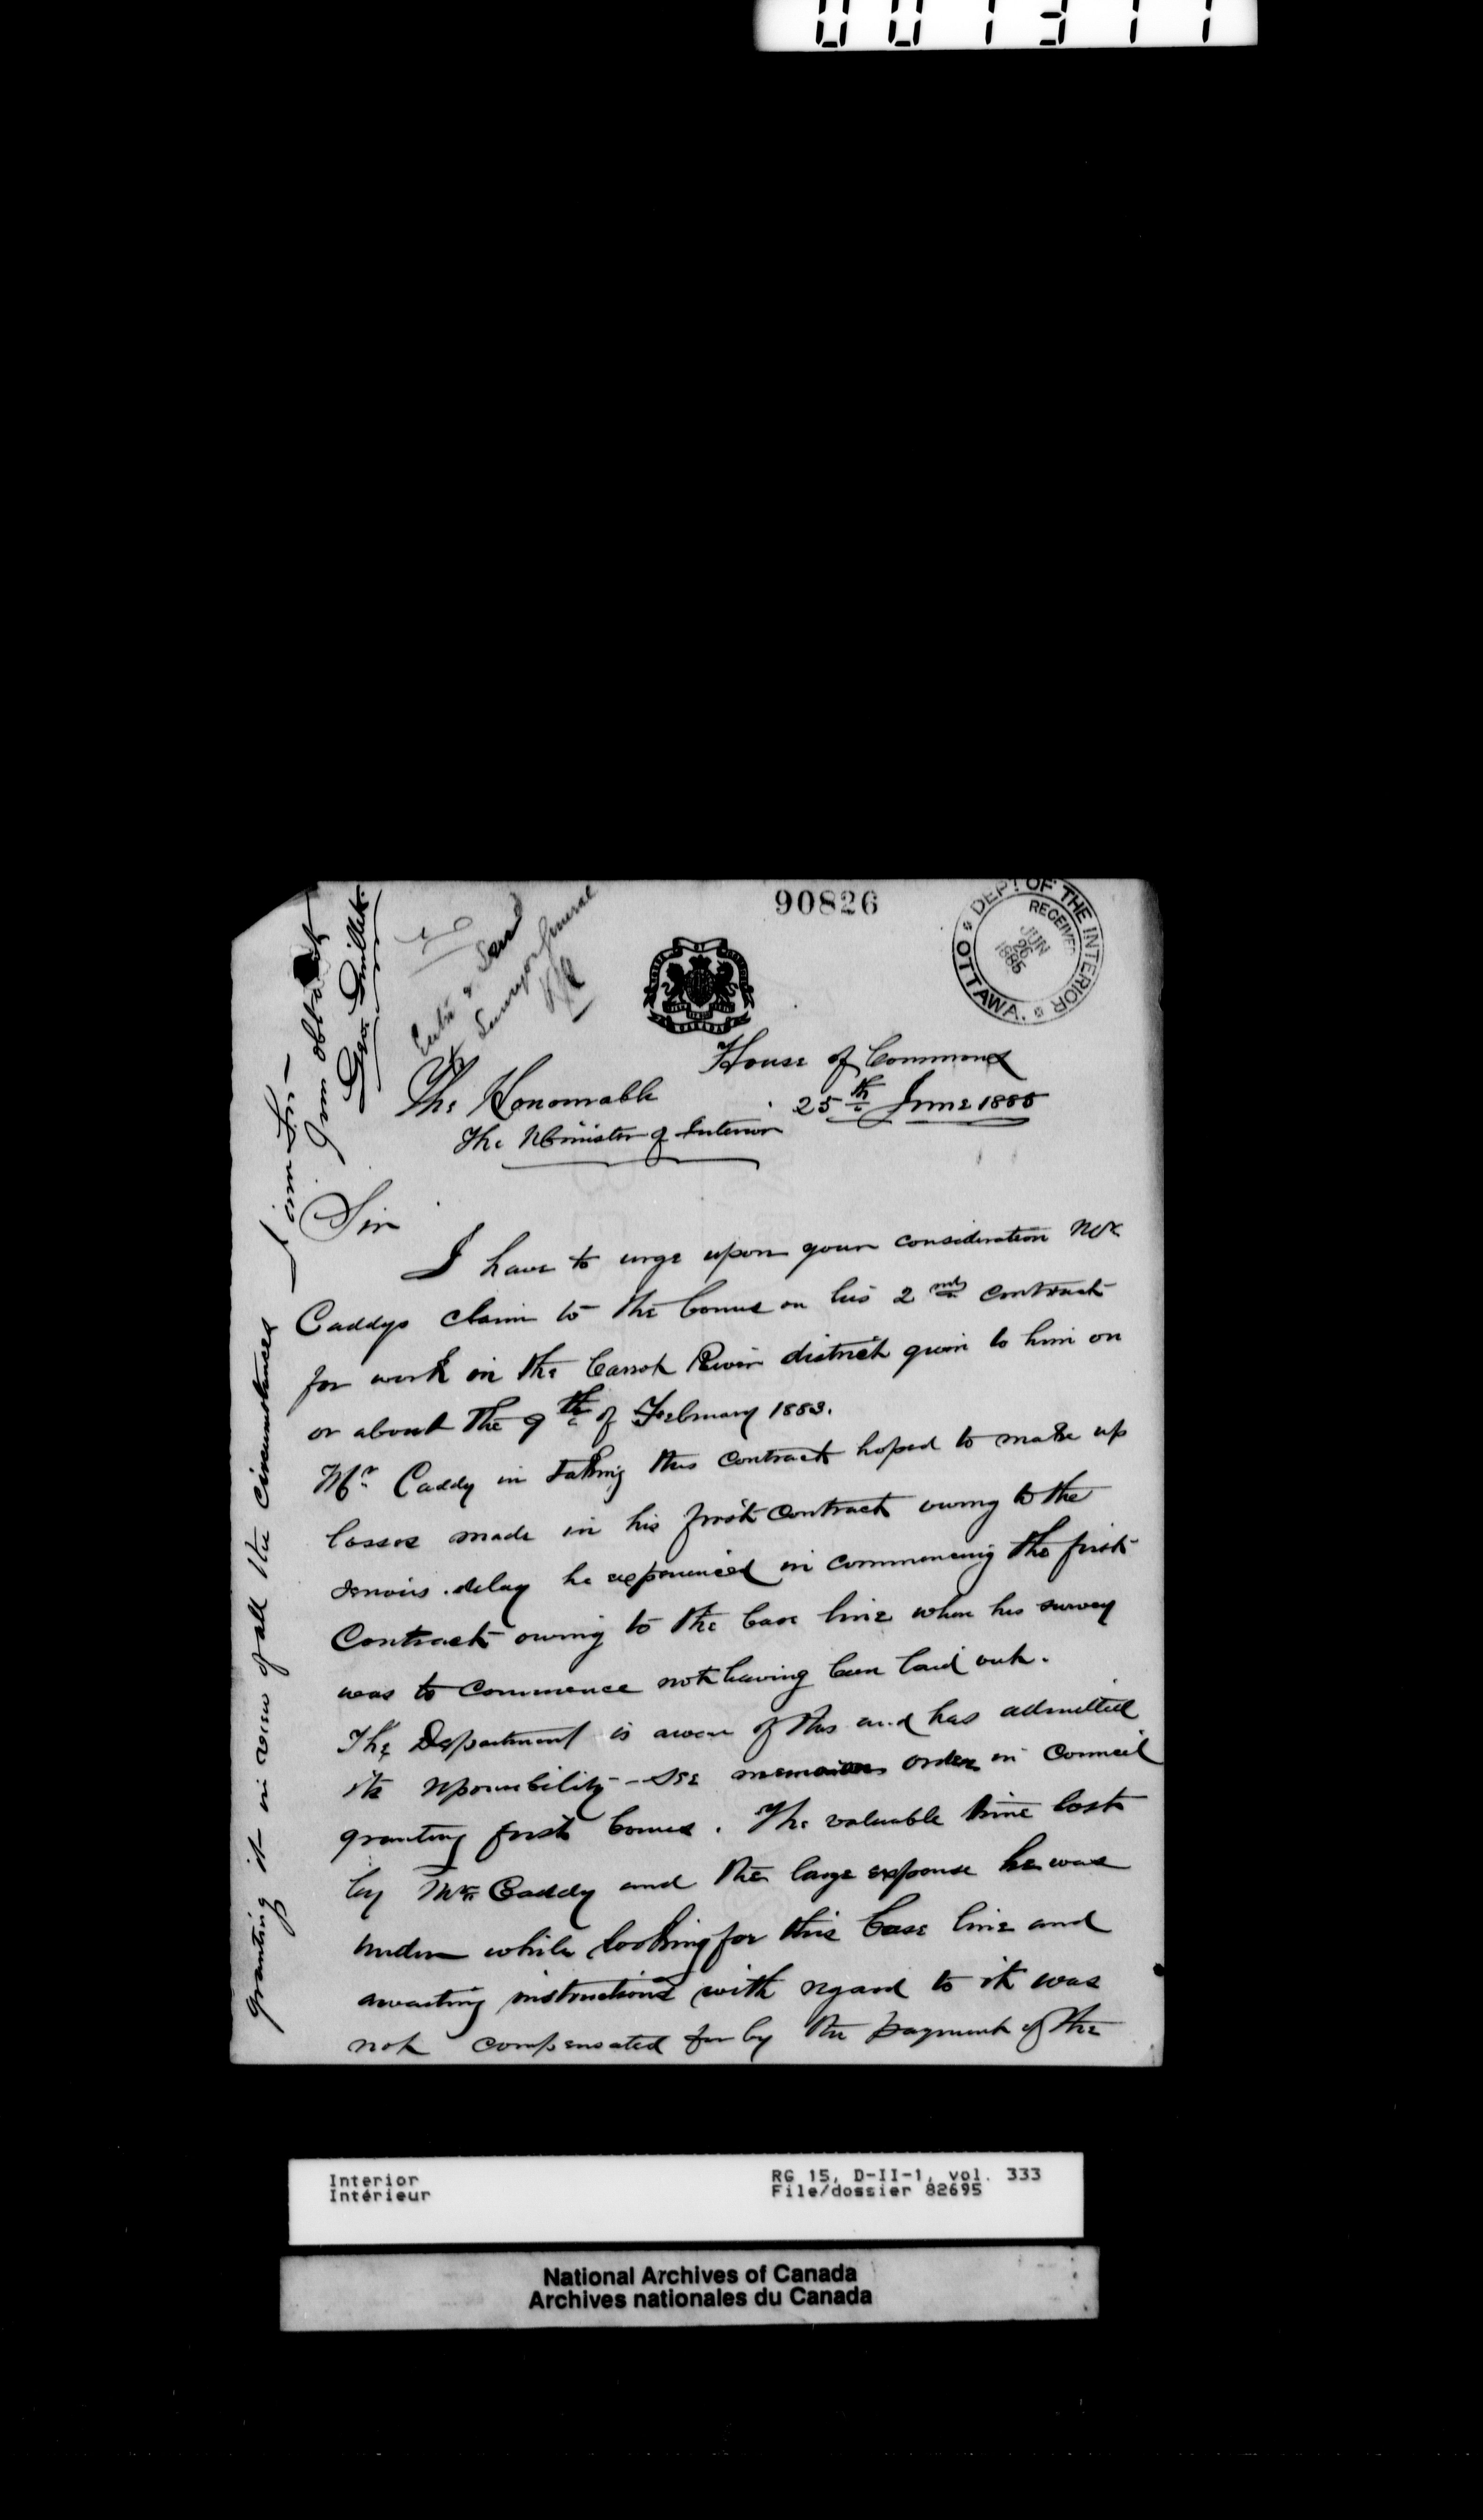 001311
90826
DEPT OF THE INTERIOR
OTTAWA.
RECEIVED
JUN
26
1885
Surveyor General
House of Commons
25th June 1885
The Honourable
The Minister of Interior
Sir
I have to urge upon your consideration Mr
Caddys claim to the bonus on his 2nd contract
for work in the Carrot River district given to him on
or about the 9th of February 1883.
Mr Caddy in taking this contract hoped to make up
losses made in his first contract owing to the
serious delay he experienced in commencing the first
Contract owing to the base line when his survey
was to commence not having been laid out.
The Department is aware of this and has admitted
its responsibility - see order in Council
granting first bonus. The valuable time lost
by Mr. Caddy and the large expense he was
under while looking for this base line and
awaiting instructions with regard to it was
not compensated for by the payment of the
granting it in view of all the circumstances
I am Sir -
Your obt
Interior
Intérieur
RG 15, D-II-1, vol. 333
File/dossier 82695
National Archives of Canada
Archives nationales du Canada